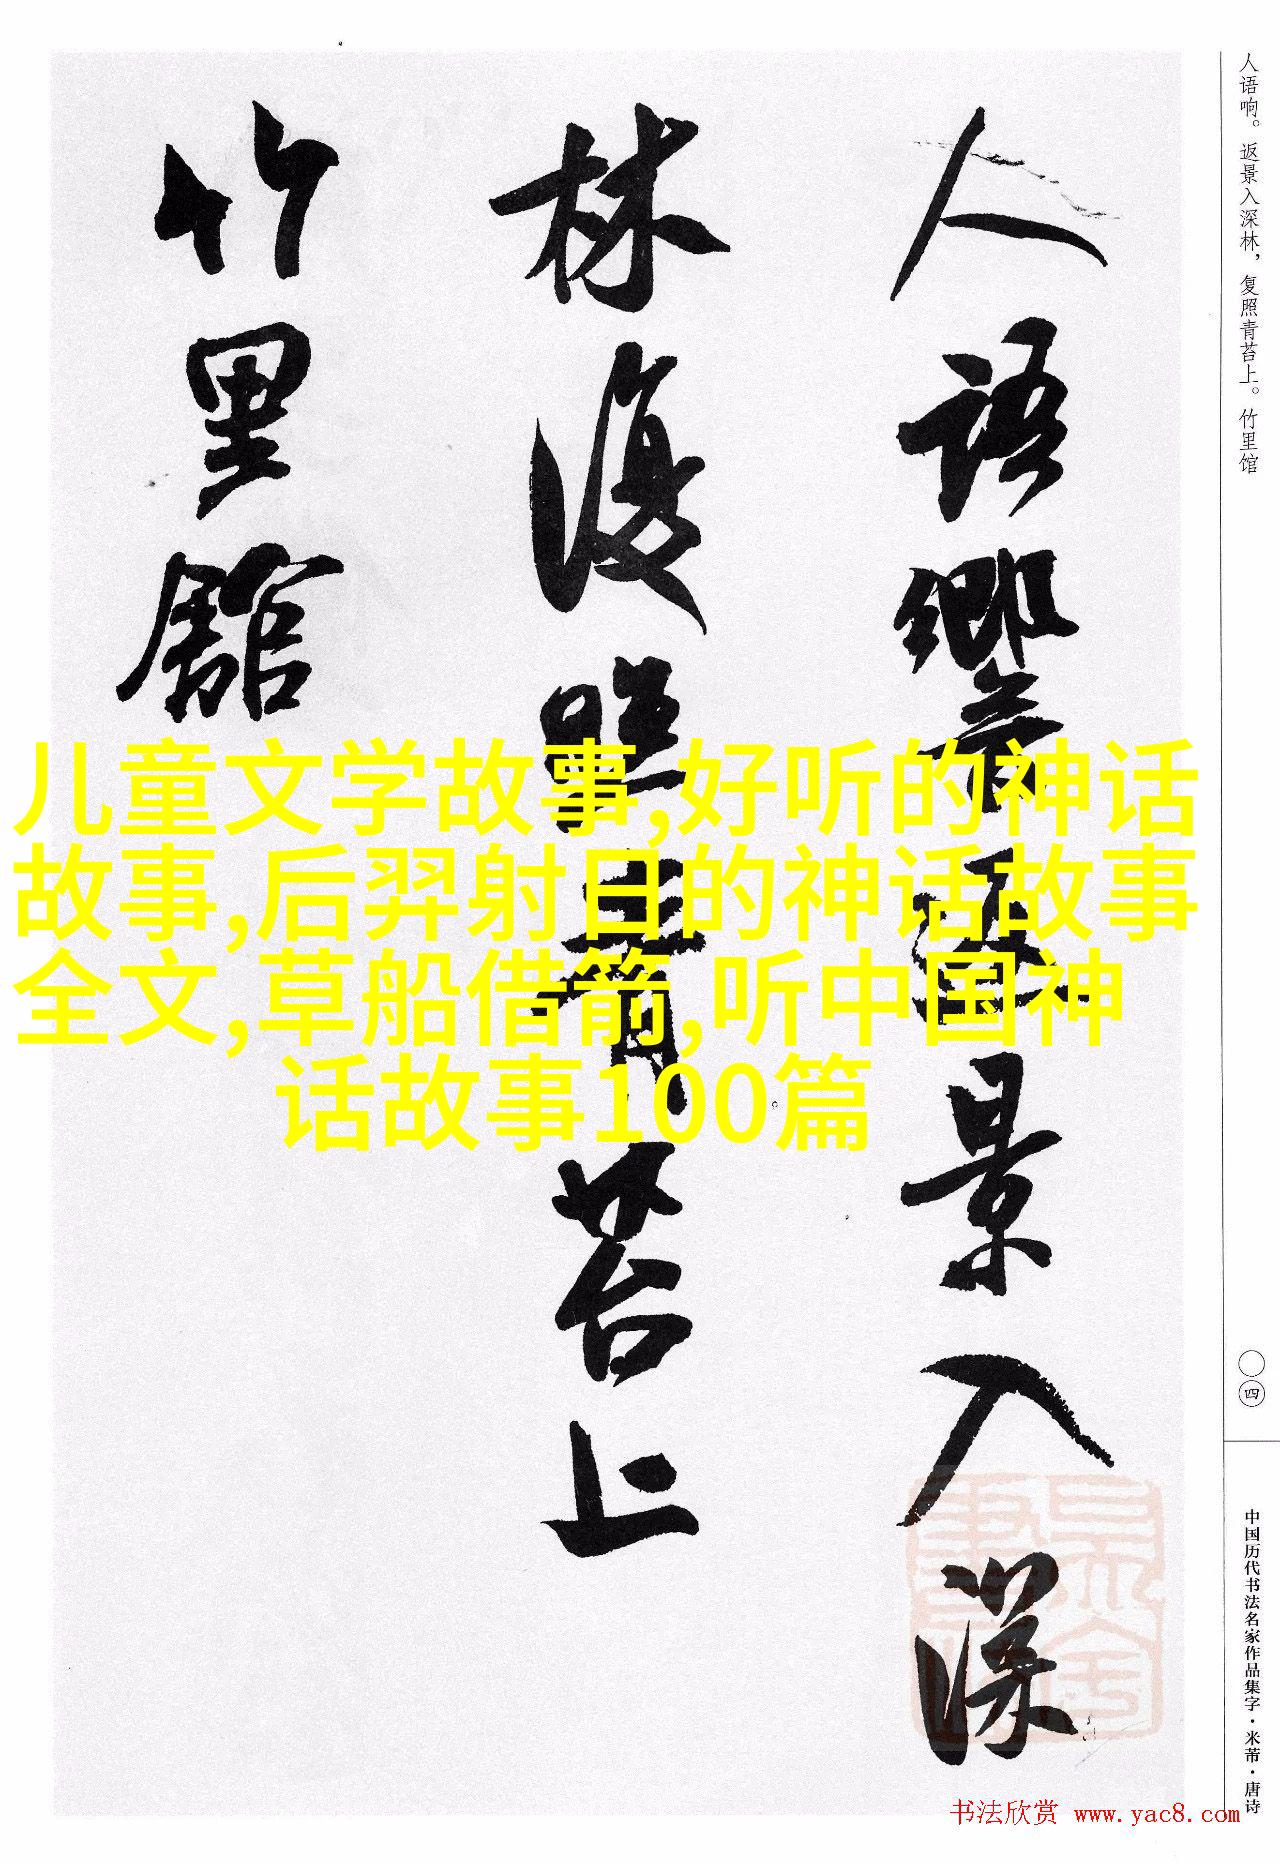 人语响。返景入深林，复照青苔上。竹里馆
人語響返景入深
林復照青苔上
竹里館
儿童文学故事,好听的神话
故事,后羿射日的神话故事
全文,草船借箭,听中国神
话故事100篇
〇四
中国历代书法名家作品集字·米芾·唐诗
书法欣赏 www.yac8.com